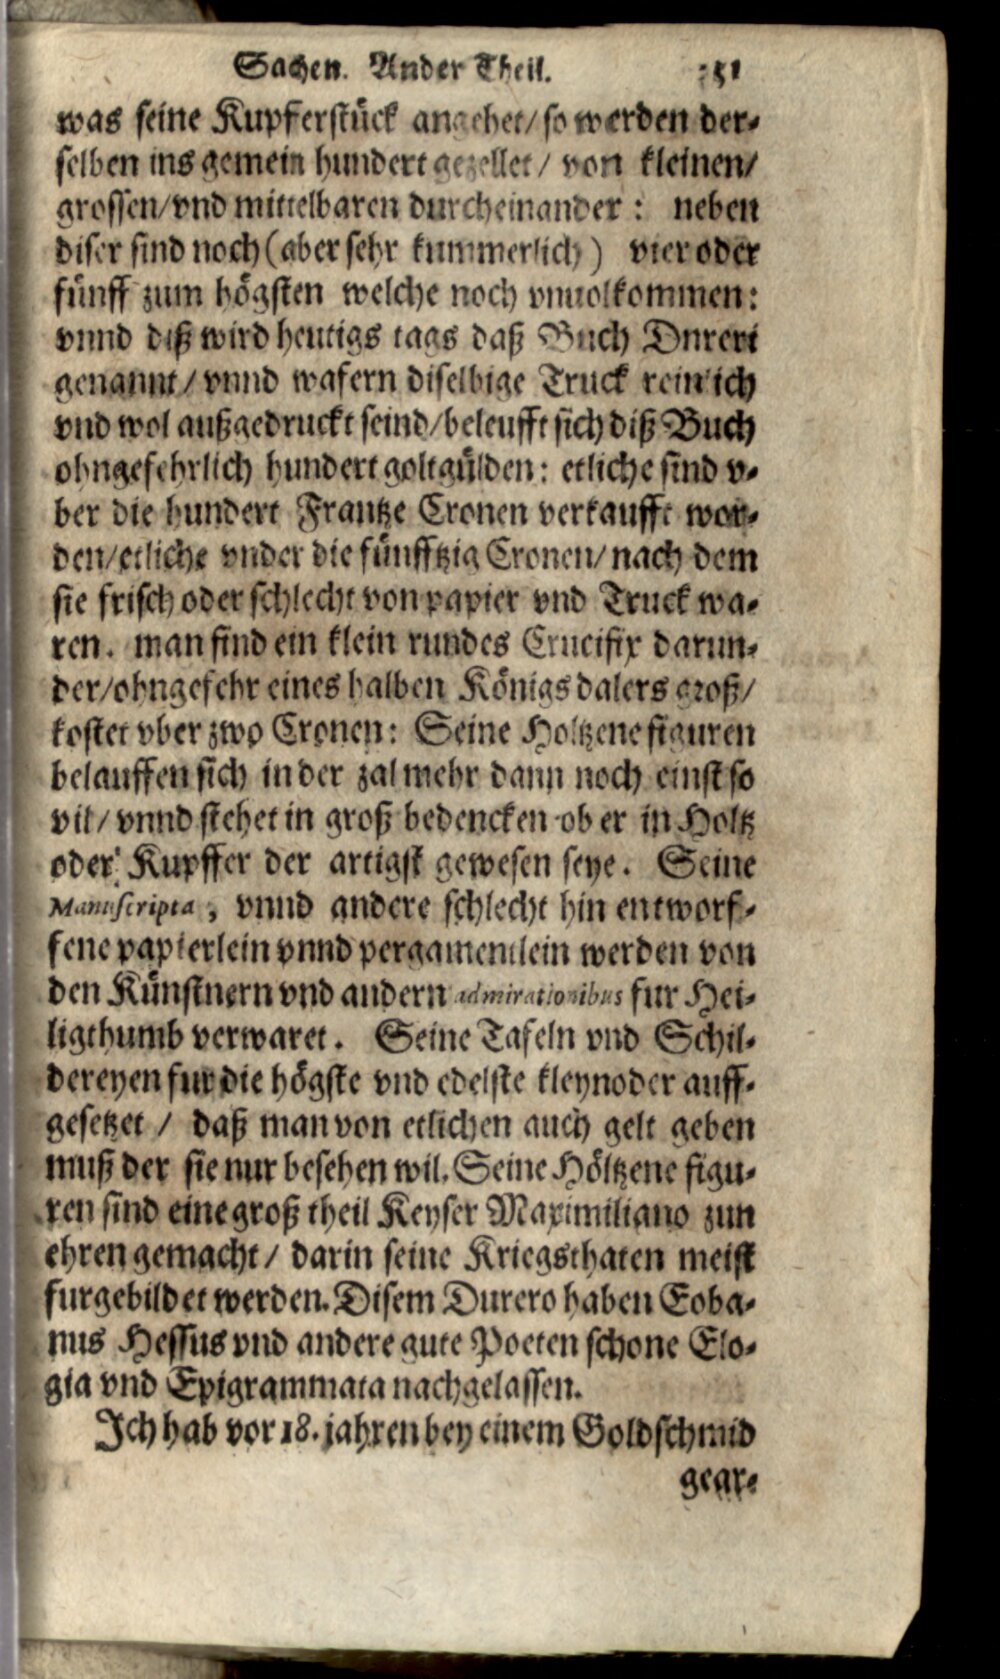 Sachen. Ander Theil. 151
was seine Kupferstück angehet/ so werden der-
selben ins gemein hundert gezellet/ von kleinen/
grossen/vnd mittelbaren durcheinander: neben
diser sind noch (aber sehr kummerlich) vier oder
fünff zum högsten welche noch vnuolkommen:
vnnd diß wird heutigs tags daß Buch Dureri
genannt/ vnnd wafern diselbige Truck reinlich
vnd wol außgedruckt seind/beleufft sich diß Buch
ohngefehrlich hundert goltgülden: etliche sind v-
ber die hundert Frantze Cronen verkaufft wor-
den/etliche vnder die fünfftzig Cronen/ nach dem
sie frisch oder schlecht von papier vnd Truck wa-
ren. man find ein klein rundes Crucifix darun-
der/ohngefehr eines halben Königs dalers groß/
kostet vber zwo Cronen: Seine Holtzene figuren
belauffen sich in der zal mehr dann noch einst so
vil/ vnnd stehet in groß bedencken ob er in Holtz
oder Kupffer der artigst gewesen seye. Seine
Manuscripta, vnnd andere schlecht hin entworf-
fene papierlein vnnd pergamentlein werden von
den Künstnern vnd andern admirationibus fur Hei-
ligthumb verwaret. Seine Tafeln vnd Schil-
dereyen fur die högste vnd edelste kleynoder auff-
gesetzet / daß man von etlichen auch gelt geben
muß der sie nur besehen wil. Seine Höltzene figu-
ren sind eine groß theil Keyser Maximiliano zun
ehren gemacht/ darin seine Kriegsthaten meist
furgebildet werden. Disem Durero haben Eoba-
nus Hessus vnd andere gute Poeten schone Elo-
gia vnd Epigrammata nachgelassen.
Ich hab vor 18. jahren bey einem Goldschmid
gear-